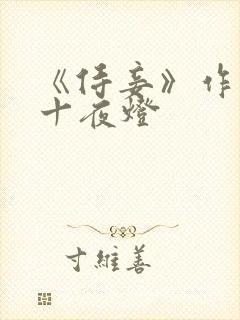 《侍妾》作
十夜燈
寸維善